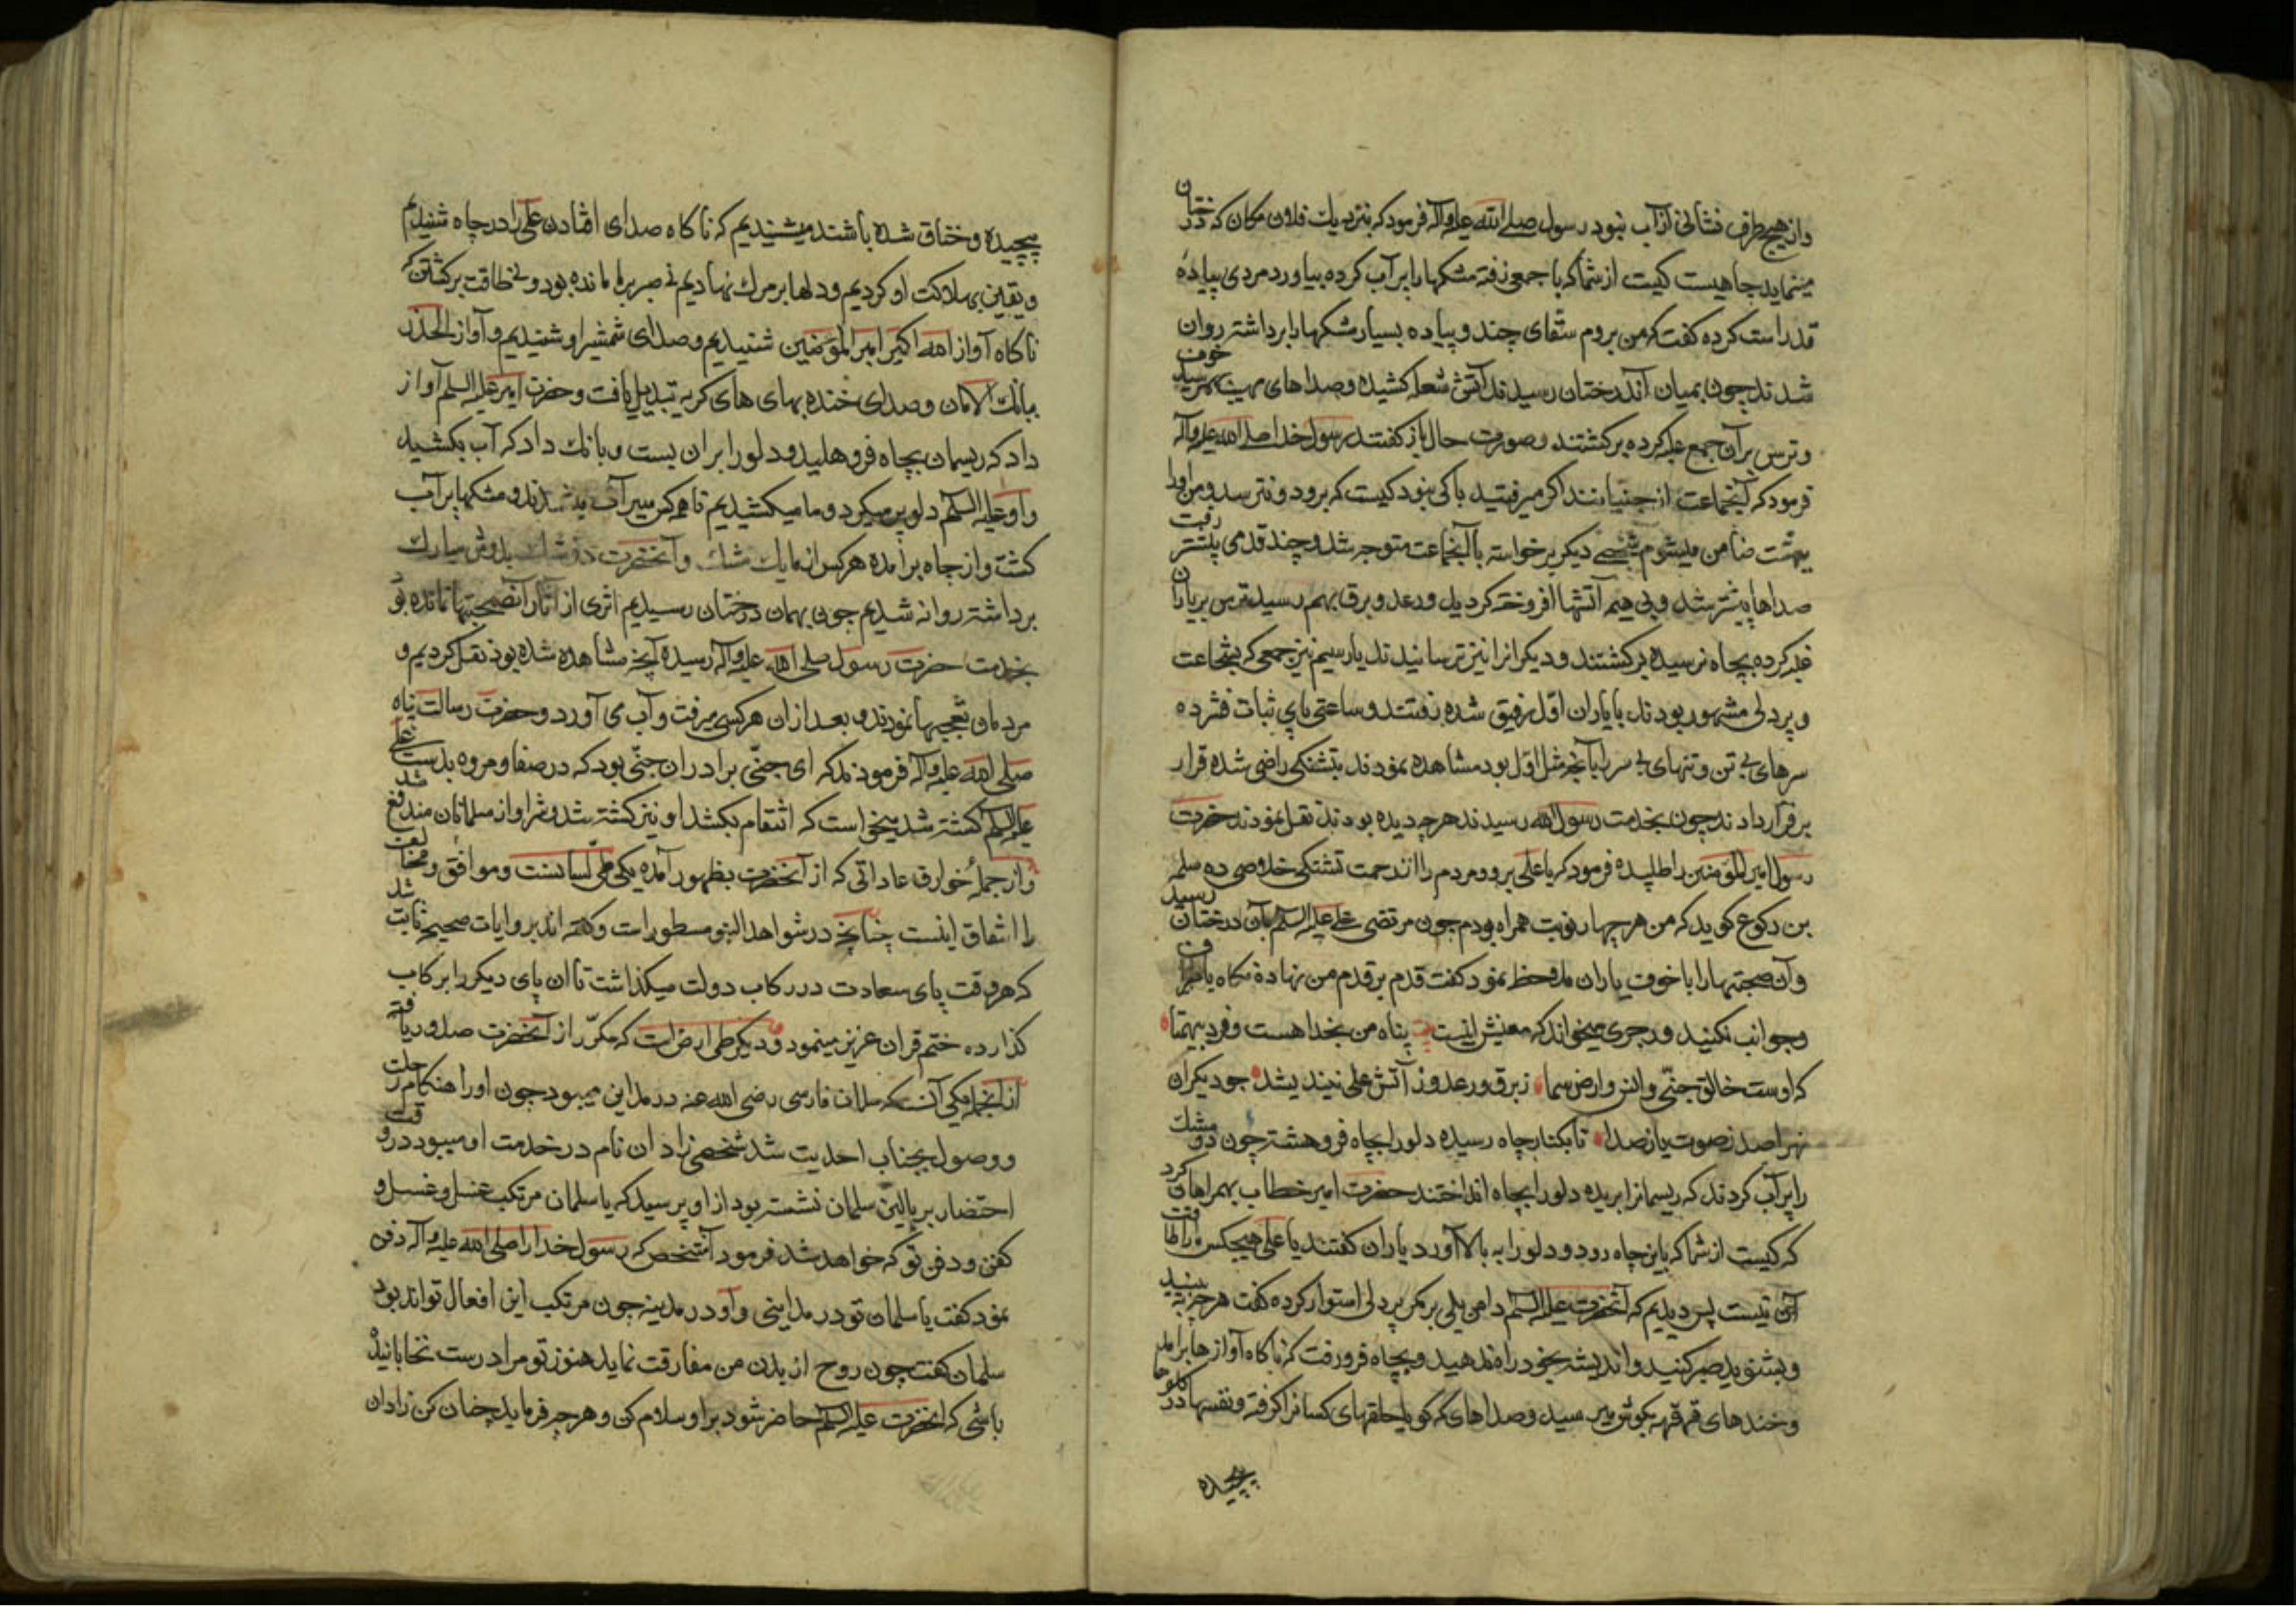 واز هیچ طرف نشانی از آب نبود رسول صلی الله علیه وآله فرمود که نزدیك فلان مکان که درختان
مینماید چاهیست کیست از شما که با جمعی رفته مشکها را پر آب کرده بیاورد مردی پیاده
قد راست کرده کفت که من بروم سقای چند و پیاده بسیار مشکها را برداشته روان
شدند چون بمیان آن درختان رسیدند آتش شعله کشیده وصداهای مهیب بهم رسید خوف
وترس بر آن جمع غلبه کرده برکشتند وصورت حال باز کفتند رسول خدا صلی الله علیه وآله
فرمود که آنجماعت از جنیانند اکر میرفتید باکی نبود کیست که برود ونترسد ومن او را
بهشت ضامن میشوم شخصی دیکر برخواسته با آنجماعت متوجه شد وچند قدمی پیشتر رفت
صداها بیشتر شد وبی هیمه آتشها افروخته کردید ورعد وبرق بهم رسید ترس بر یاران
غلبه کرده بچاه نرسیده برکشتند ودیکرانرا نیز ترسانیدند بار سیم نیز جمعی که بشجاعت
و پردلی مشهور بودند با یاران اول رفیق شده رفتند وساعتی پای ثبات فشرده
سرهای بی تن وتنهای بی سر با آنچه مثل اول بود مشاهده نمودند بتشنکی راضی شده قرار
بر فرار دادند چون بخدمت رسول الله رسیدند هرچه دیده بودند نقل نمودند حضرت
رسول امیر المؤمنین را طلبیده فرمود که یا علی برو ومردم را از زحمت تشنکی خلاصی ده سلمه
بن رکوع کوید که من هر چهار نوبت همراه بودم چون مرتضی علی علیه السلم بآن درختان رسید
وآن صحبتها را با خوف یاران ملاحظه نمود کفت قدم بر قدم من نهاده نکاه باطراف
وجوانب نکنید ورجزی میخواند که معنیش اینست پناه من بخدا هست وفرد بیهمتا
که اوست خالق جنی وانس وارض سما ز برق ورعد وز آتش علی نیندیشد چو دیکران
نهراسد ز صوت یا ز صدا تا بکنار چاه رسیده دلو را بچاه فرو هشته چون دو مشك
را پر آب کردند که ریسمانرا بریده دلو را بچاه انداختند حضرت امیر خطاب بهمراهان کرد
که کیست از شما که باین چاه رود ودلو را به بالا آورد یاران کفتند یا علی هیچکس را طاقت
آن نیست پس دیدیم که آنحضرت علیه السلم دامن یلی بر کمر پردلی استوار کرده کفت هر چه به بینید
وبشنوید صبر کنید واندیشه بخود راه ندهید وبچاه فرو رفت که ناکاه آوازها برآمد
وخندهای قهقهه بکوش میرسید وصداهای که کویا حلقهای کسانرا کرفته ونفسها در کلوها
پیچیده
پیچیده وخناق شده باشند میشنیدیم که ناکاه صدای افتادن علی را در چاه شنیدیم
ویقین بهلاکت او کردیم ودلها بر مرك نهادیم نه صبر بر ما مانده بود ونه طاقت برکشتن که
ناکاه آواز الله اکبر امیر المؤمنین شنیدیم وصدای شمشیر او شنیدیم وآواز الحذر
ببانك الامان وصدای خنده بهای های کریه تبدیل یافت وحضرت امیر علیه السلم آواز
داد که ریسمان بچاه فرو هلید ودلو را بران بست وبانك داد که آب بکشید
واو علیه السلم دلو پر میکرد وما میکشیدیم تا همه کس سیر آب شدند ومشکها پر آب
کشت واز چاه برآمده هر کس از ما یك مشك وآنحضرت دو مشك بدوش مبارك
برداشته روانه شدیم چون بهمان درختان رسیدیم اثری از آثار آنصحبتها نمانده بود
بخدمت حضرت رسول صلی الله علیه وآله رسیده آنچه مشاهده شده بود نقل کردیم و
مردمان تعجبها نمودند و بعد از ان هر کسی میرفت وآب می آورد وحضرت رسالت پناه
صلی الله علیه وآله فرمودند که ای جنّی برادر ان جنّی بود که در صفا ومروه بدست علی
علیه السلم کشته شد میخواست که انتقام بکشد او نیز کشته شد وشر او از مسلمانان مندفع شد
واز جملهٔ خوارق عاداتی که از آنحضرت بظهور آمده یکی طی لسانست وموافق ومخالف
را اتفاق اینست چنانچه در شواهد النبوه مسطور است وکفته اند بروایات صحیحه ثابت شد
که هر وقت پای سعادت در رکاب دولت میکذاشت تا ان پای دیکر را بر کاب
کذارده ختم قران عزیز مینمود ودیکر طی ارض است که مکرّر از آنحضرت صدور یافته
از آنجمله یکی آنست که سلمان فارسی رضی الله عنه در مداین میبود چون او را هنکام رحلت
ووصول بجناب احدیت شد شخصی زادان نام در خدمت او میبود در وقت
احتضار بر بالین سلمان نشسته بود از او پرسید که یا سلمان مرتکب غسل و
کفن ودفن تو که خواهد شد فرمود آنشخص که رسول خدا را صلی الله علیه وآله دفن
نمود کفت یا سلمان تو در مداینی واو در مدینه چون مرتکب این افعال تواند بود
سلمان کفت چون روح از بدن من مفارقت نماید هنوز تو مرا درست نخابانیده
باشی که انحضرت علیه السلم حاضر شود بر او سلام کن وهر چه فرماید چنان کن زادان